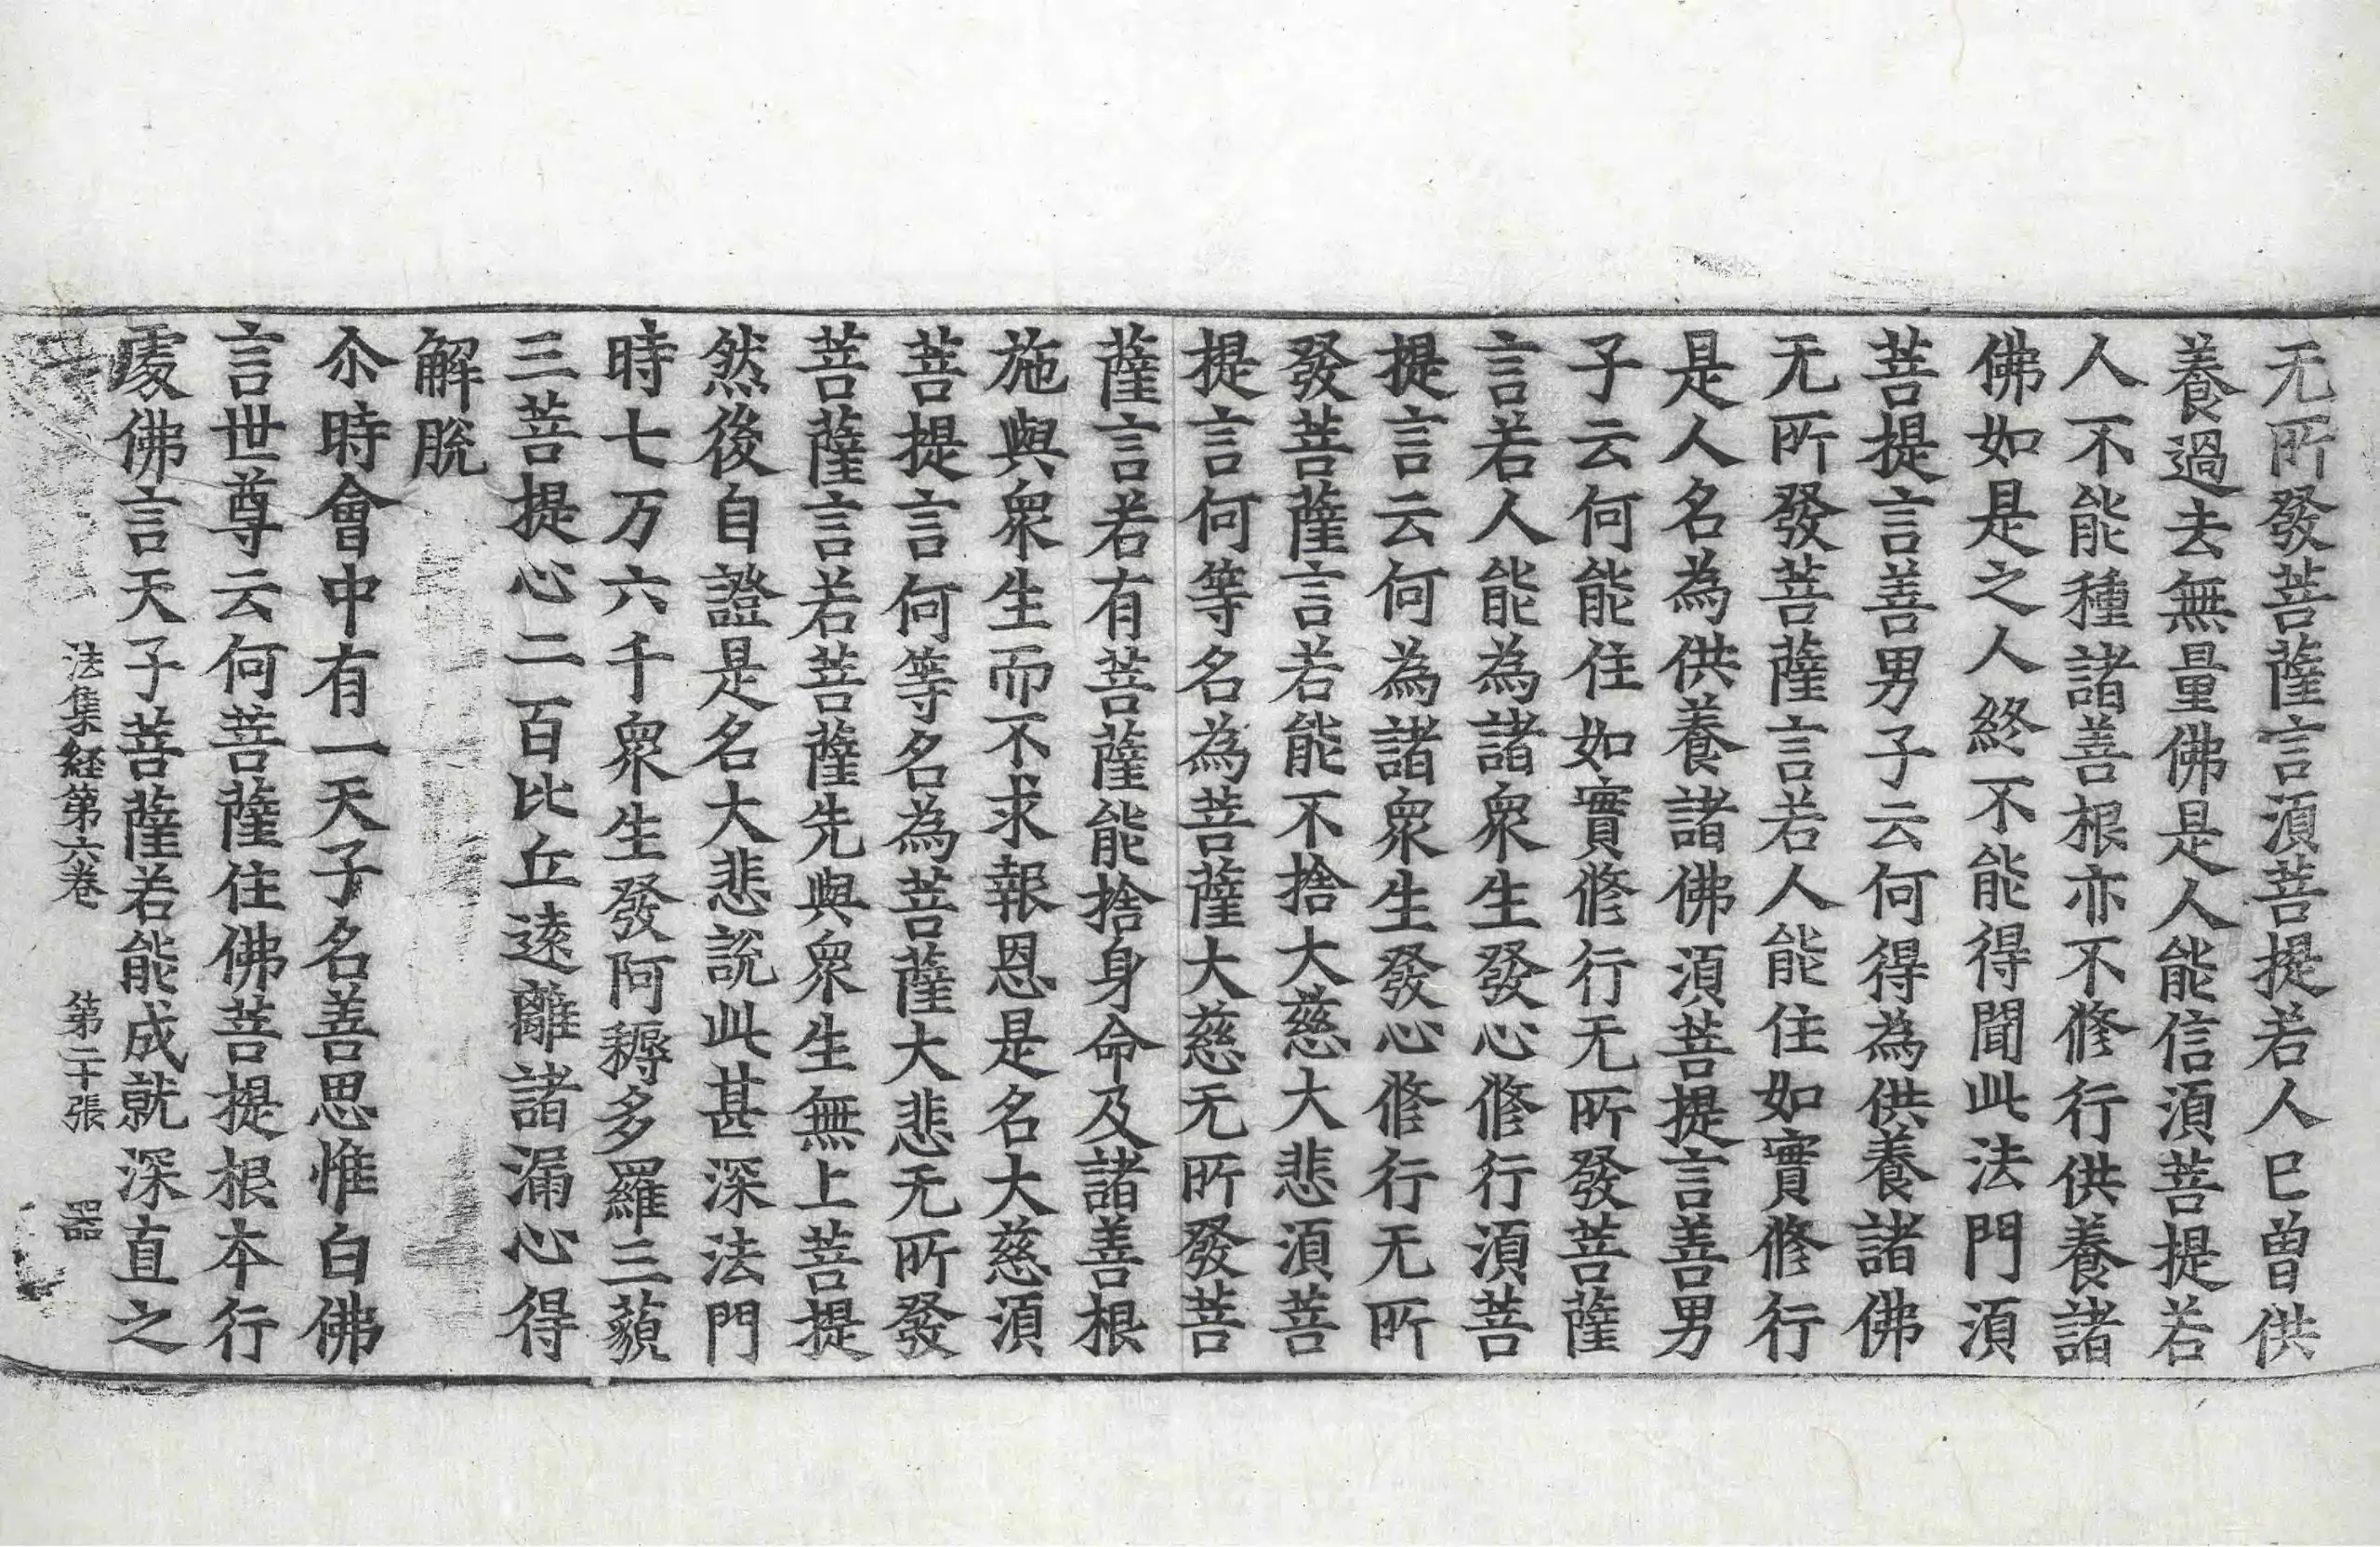 无所發菩薩言湏菩提若人巳曾供
養過去無量佛是人能信湏菩提若
人不能種諸善根亦不修行供養諸
佛如是之人終不能得聞此法門湏
菩提言善男子云何得為供養諸佛
无所發菩薩言若人能住如實修行
是人名為供養諸佛湏菩提言善男
子云何能住如實修行无所發菩薩
言若人能為諸衆生發心修行湏菩
提言云何為諸衆生發心修行无所
發菩薩言若能不捨大慈大悲湏菩
提言何等名為菩薩大慈无所發菩
薩言若有菩薩能捨身命及諸善根
施與衆生而不求報恩是名大慈湏
菩提言何等名為菩薩大悲无所發
菩薩言若菩薩先與衆生無上菩提
然後自證是名大悲說此甚深法門
時七万六千衆生發阿耨多羅三藐
三菩提心二百比丘遠離諸漏心得
解脫
尒時會中有一天子名善思惟白佛
言世尊云何菩薩住佛菩提根本行
處佛言天子菩薩若能成就深直之
法集経第六卷 第二十張 器